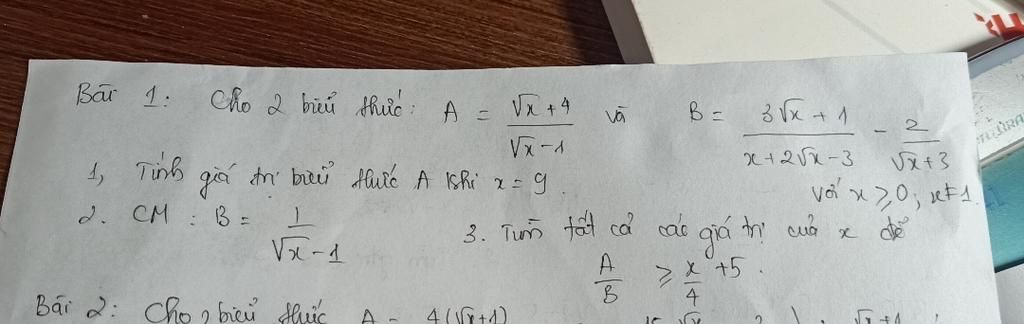 Bài 1: Cho 2 biểu thức: A = (√x + 4)/(√x - 1) và B = (3√x + 1)/(x + 2√x - 3) - 2/(√x + 3)
với x ≥ 0; x ≠ 1.
1, Tính giá trị biểu thức A khi x = 9.
2. CM : B = 1/(√x - 1)
3. Tìm tất cả các giá trị của x để
A/B ≥ x/4 + 5.
Bài 2: Cho 2 biểu thức A = 4(√x+1)